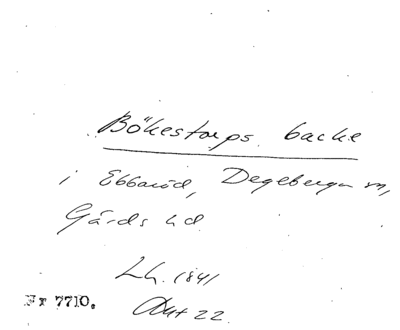 Bökestorps backe
i Ebbaröd, Degeberga sn,
Gärds hd.
Lh. 1841
Akt 22.
Fr 7710.